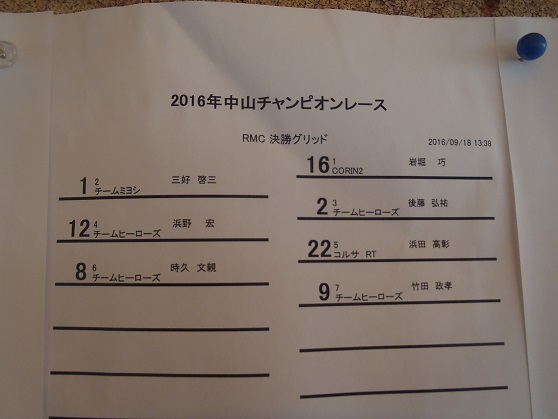 2016年中山チャンピオンレース
RMC 決勝グリッド
2016/09/18 13:38
16 1 岩堀 巧
CORIN2
1 2 三好 啓三
チームミヨシ
2 3 後藤 弘祐
チームヒーローズ
12 4 浜野 宏
チームヒーローズ
22 5 浜田 高彰
コルサ RT
8 6 時久 文親
チームヒーローズ
9 7 竹田 政孝
チームヒーローズ